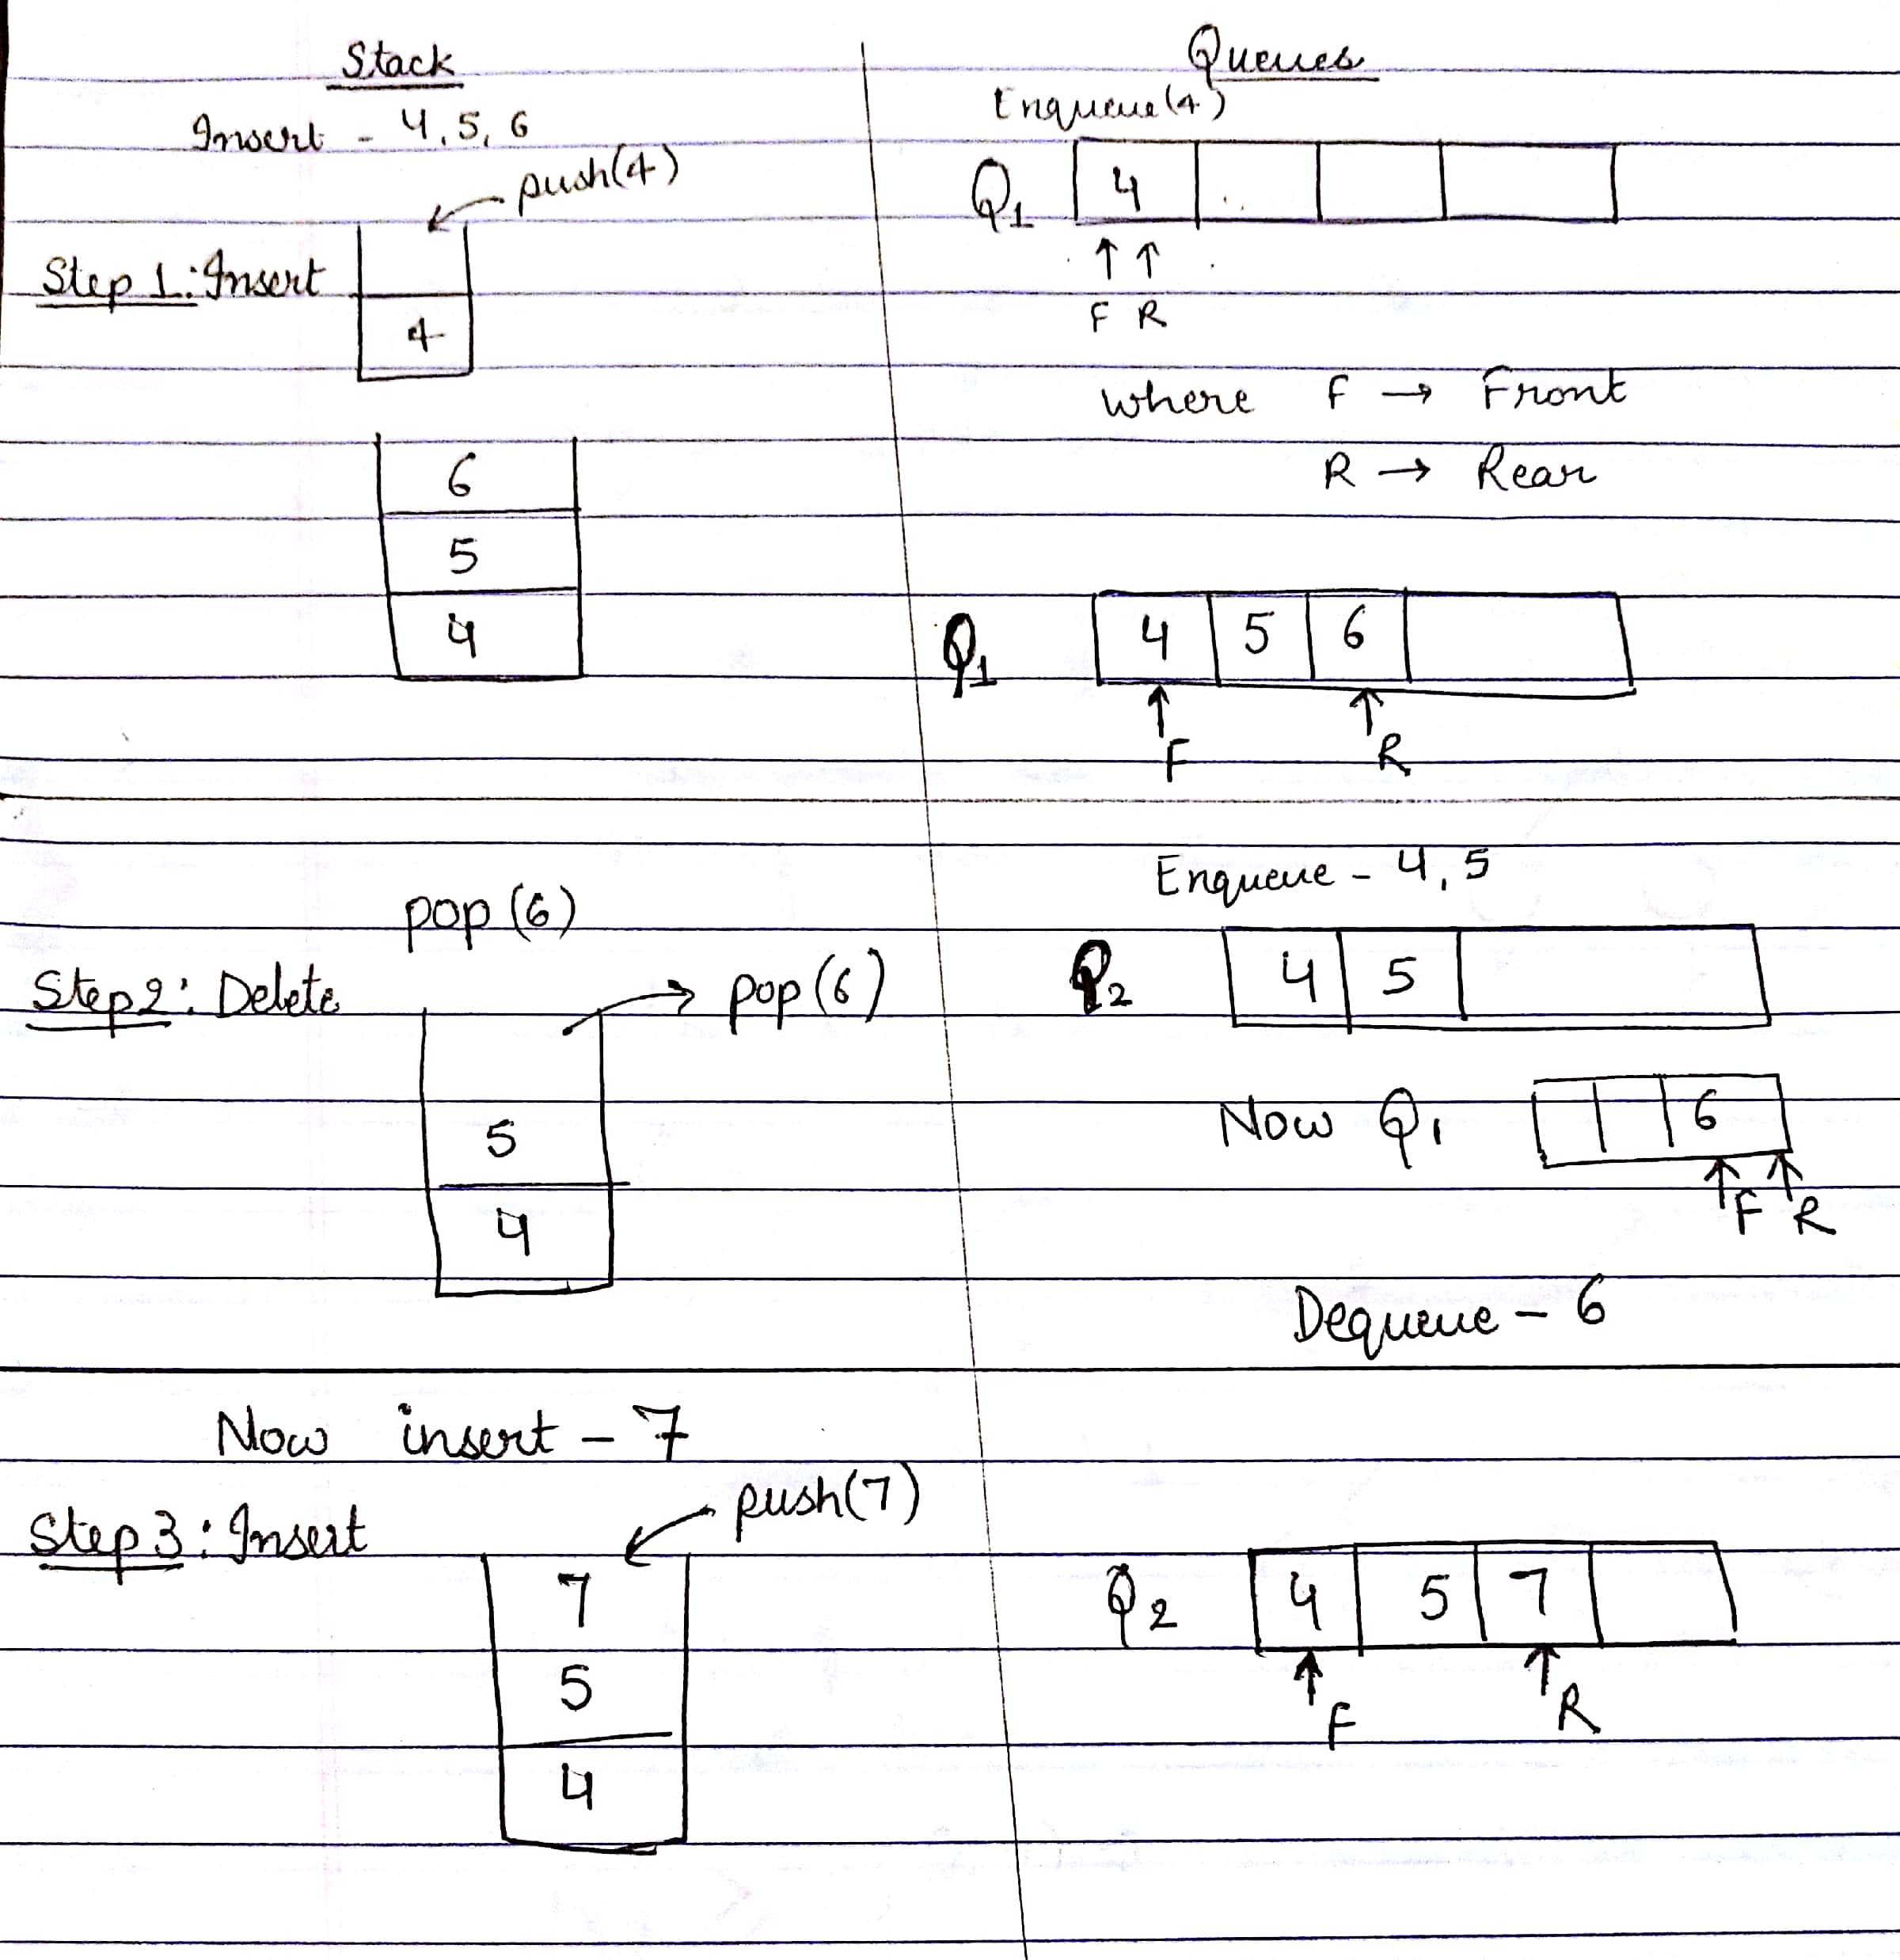 Stack
Insert - 4, 5, 6
push(4)
Step 1: Insert
4
6
5
4
pop (6)
Step2: Delete
pop (6)
5
4
Now insert - 7
push(7)
Step 3: Insert
7
5
4
Queues
Enqueue(4)
Q1 4
F R
where F → Front
R → Rear
Q1 4 5 6
F R
Enqueue - 4, 5
Q2 4 5
Now Q1 6
F R
Dequeue - 6
Q2 4 5 7
F R